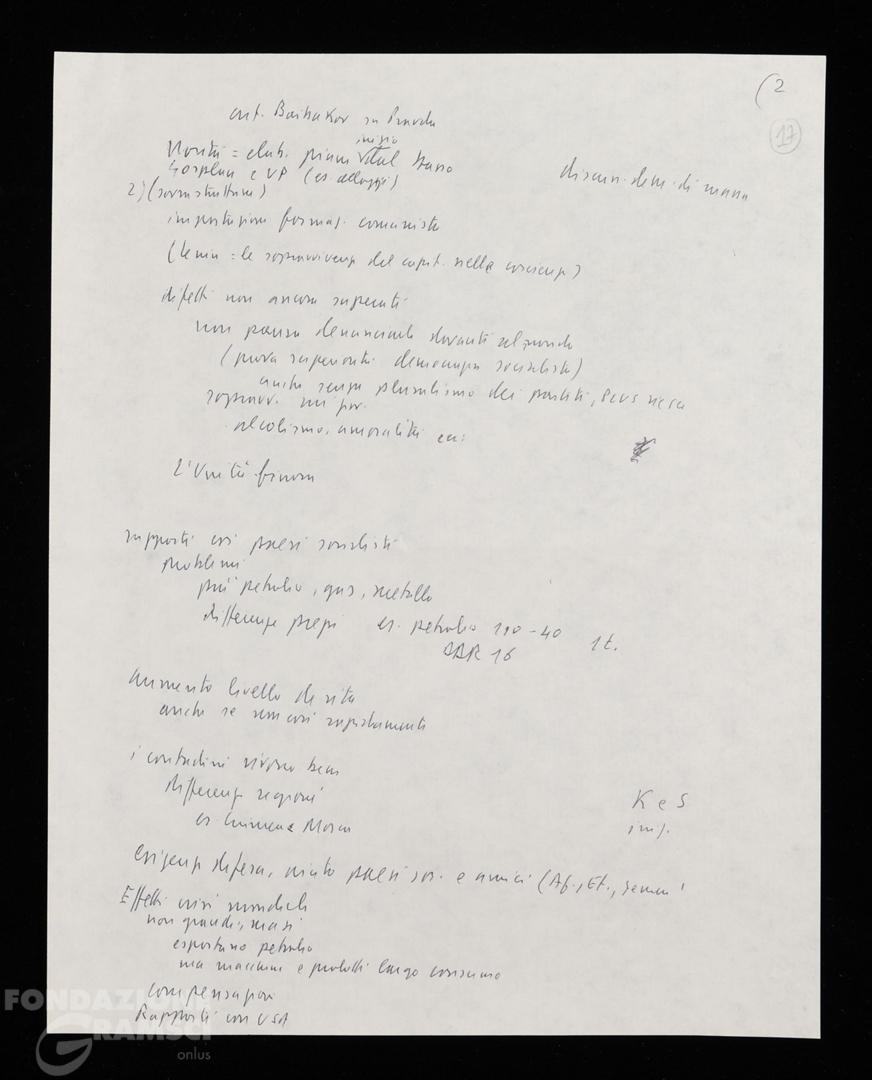 (2
17
art. Baibakov su Pravda
Novità = elab. piani inizio
Gosplan e VP (es. alloggi)
discus. dem. di massa
2) (sovrastruttura)
impostazione formaz. comunista
(Lenin = le sopravvivenze del capit. nella coscienza)
difetti non ancora superati
non paura denunciarli davanti al mondo
(prova superiorità democrazia socialista)
anche senza pluralismo dei partiti,
alcolismo, amoralità ecc.
L'Unità finora
rapporti coi paesi socialisti
problemi
più petrolio, gas, metallo
differenze prezzi es. petrolio 190-40 1 t.
16
aumento livello di vita
anche se non così rapidamente
i contadini vivono bene
differenze regioni
es. Mosca
K e S
imp.
esigenze difesa, aiuto paesi soc. e amici (Af., Et., Yemen)
Effetti crisi mondiale
non grandi, ma sì
esportano petrolio
ma macchine e prodotti largo consumo
compensazioni
Rapporti con USA
FONDAZIONE
GRAMSCI
onlus